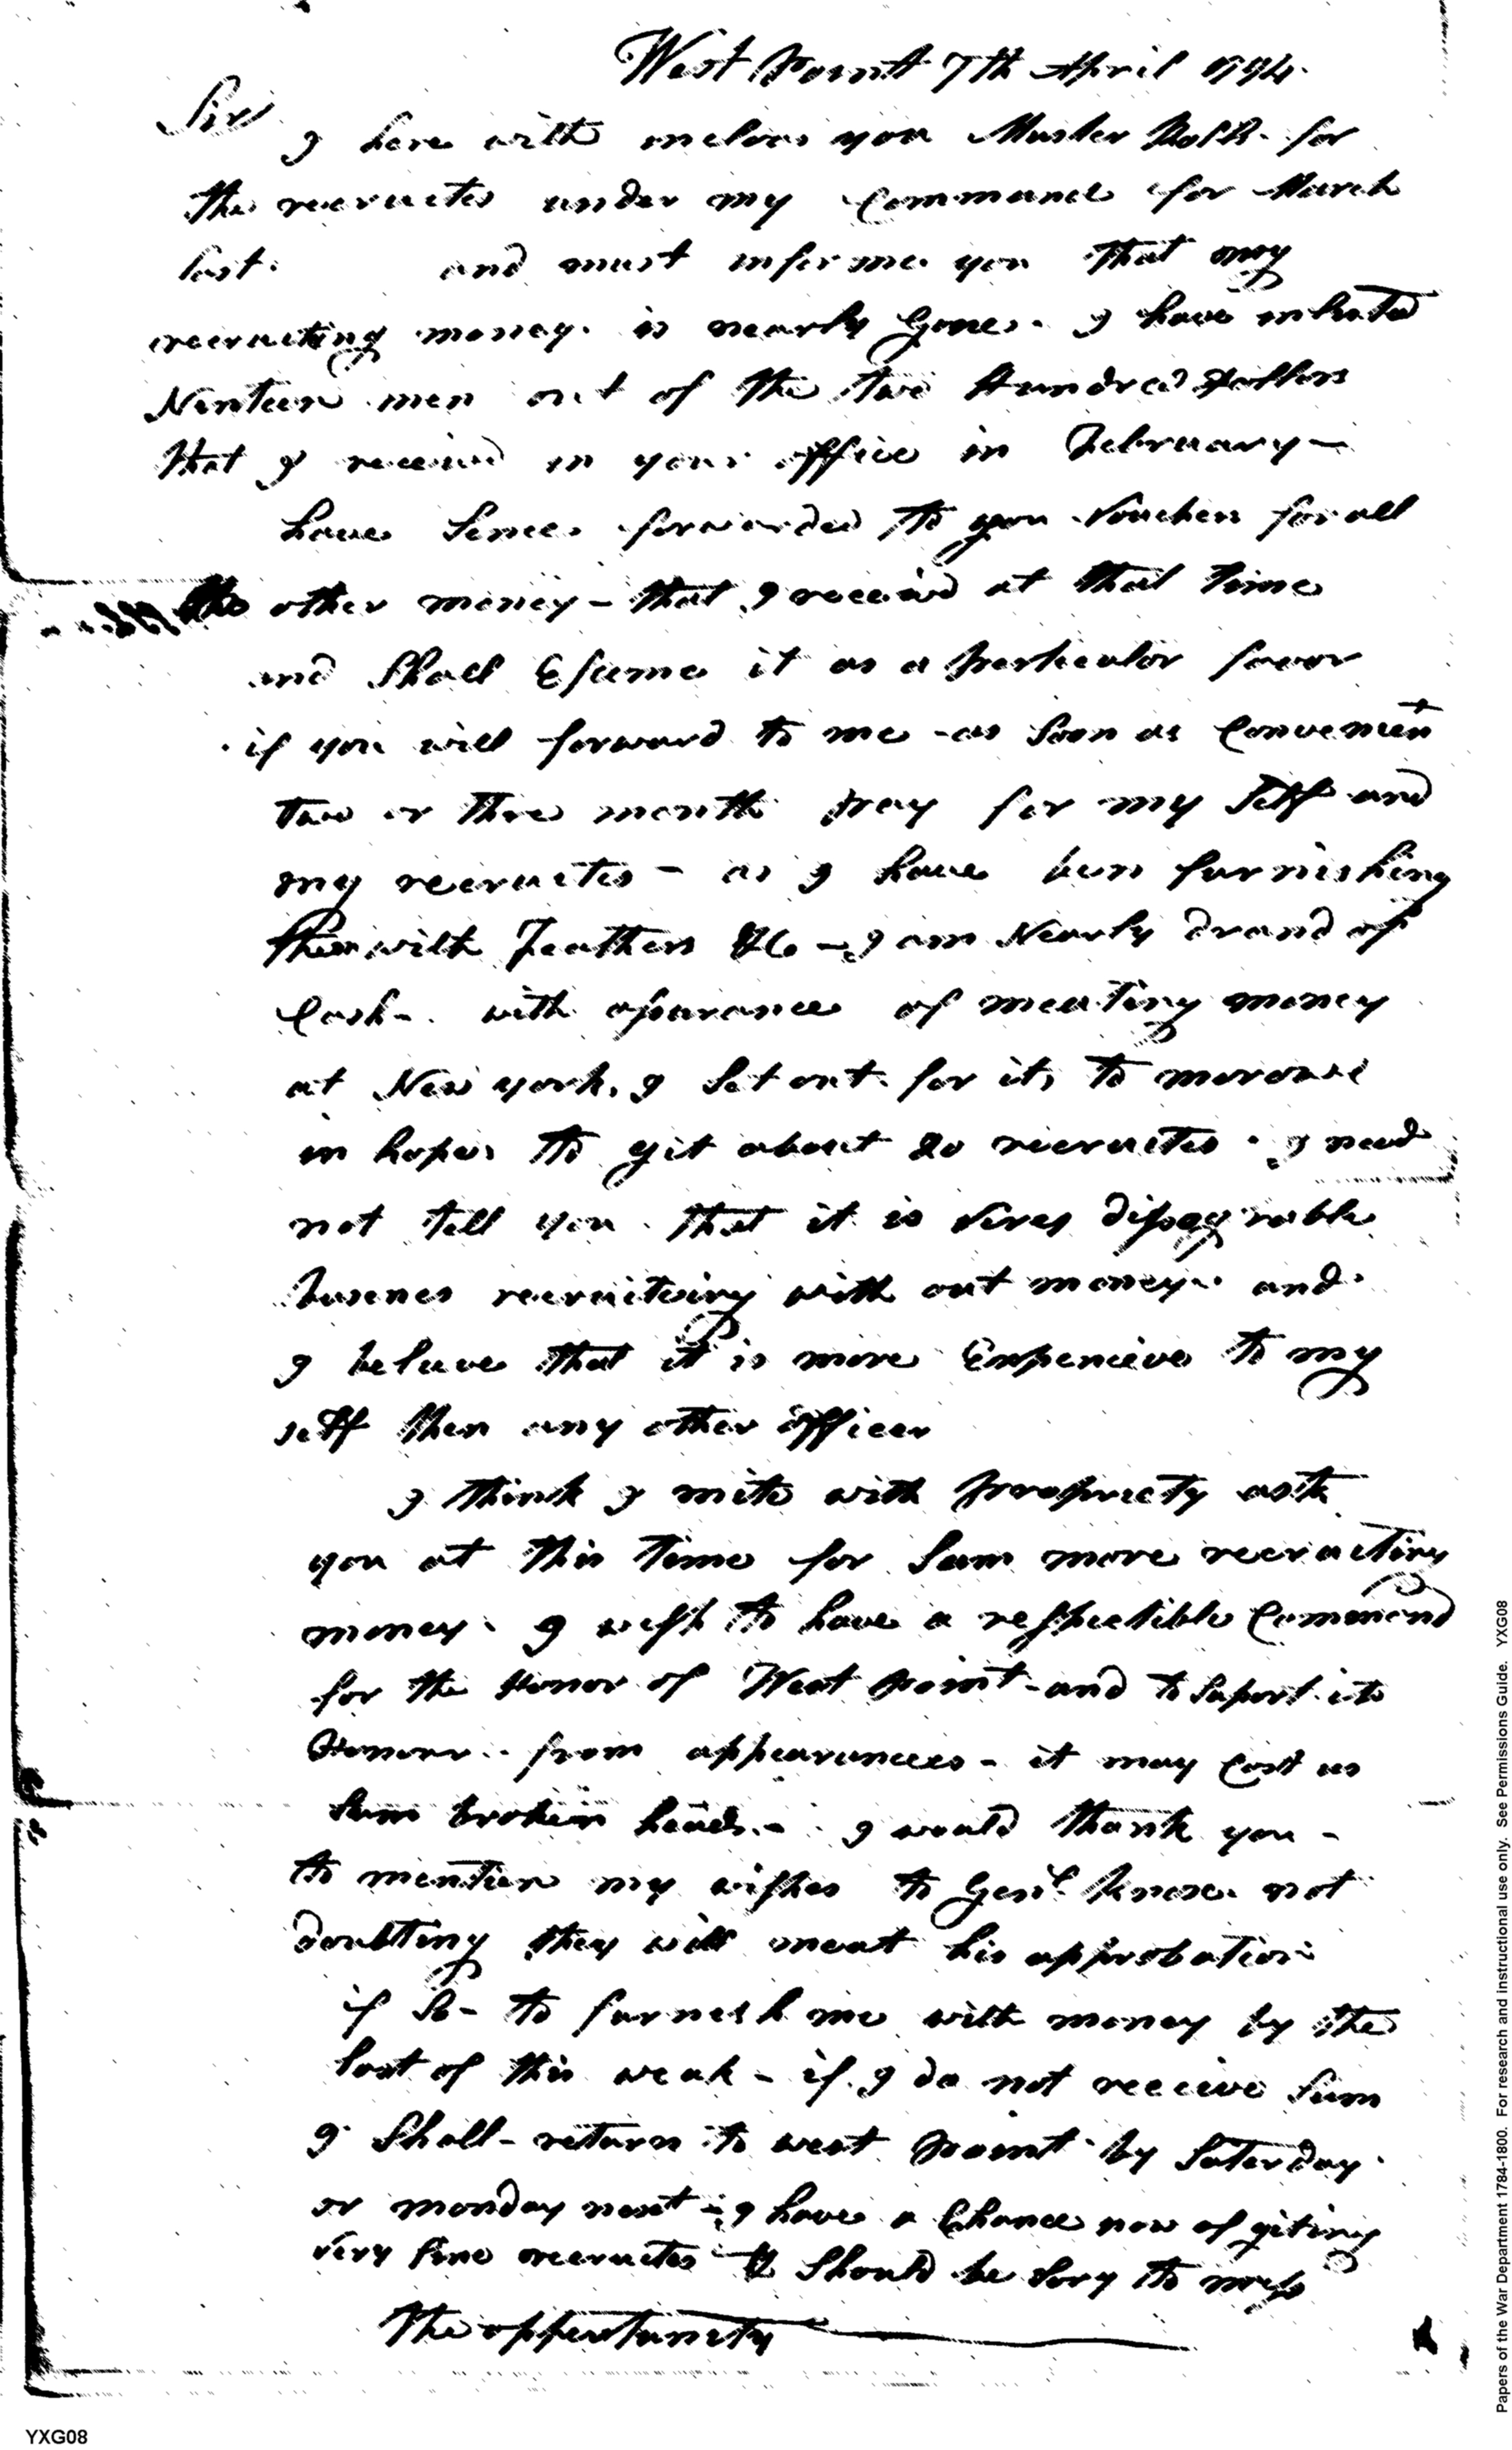 West Point 7th April 1794.
Sir
I here with inclos you Muster Rolls for
the recruites under my Command for March
last. and must informe you that my
recruiting money. is nearly Gone. I have inlisted
Ninteen men out of the two Hundred Dollars
that I received in your office in February —
have Sence forwarded to you Vouchers for all
the other money - that I received at that time
and Shall Esteeme it as a perticulor favor
if you will forward to me - as Soon as Convenient
two or three month pay for my Self and
my recruites - as I have ben furnishing
them with Feathers &C — I am Nearly drand of
Cash - with aparance of meating money
at New york, I Set out for it, to morow
in hopes to git about 20 recruites. I need
not tell you that it is Very disagreable
busenes recruiteing with out money. and
I beleave that it is more Expencieve to my
self then any other officer
I think I mite with propriety ask
you at this time for Sum more recruiting
money. I wish to have a respectible Command
for the Honor of West point - and to Suport its
Honour.. from appearances - it may Cost us
Sum broken heads. - I would thank you -
to mention my wishes to Genl Knox. not
doubting they will meat his approbation
if So - to furnesh me with money by the
last of this weak - if I do not receive Sum
I Shall - return to west point by Saterday
or monday next - I have a Chance now of giting
very fine recruites & Should be Sory to miss
the oppertunity
YXG08
Papers of the War Department 1784-1800. For research and instructional use only. See Permissions Guide. YXG08